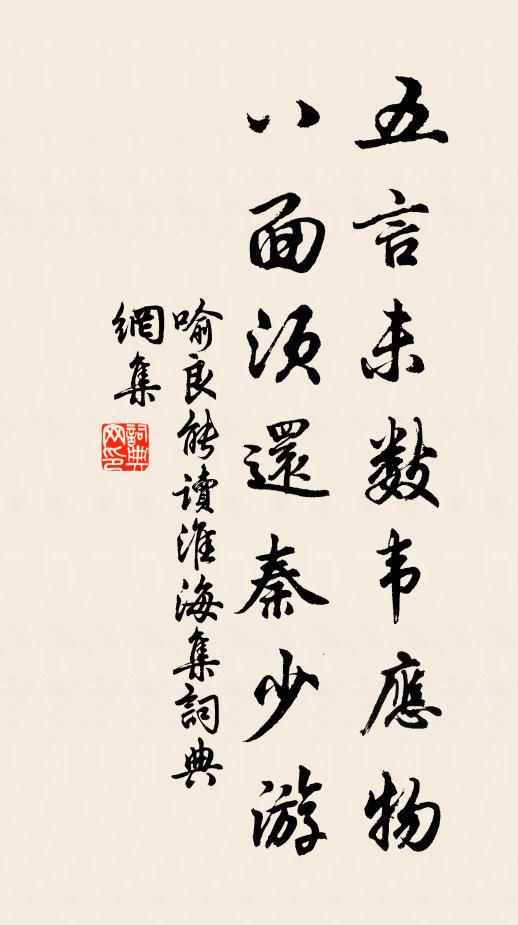 五言未数韦應物
八面須還秦少游
喻良能讀淮海集詞典
網集
詞典
网印